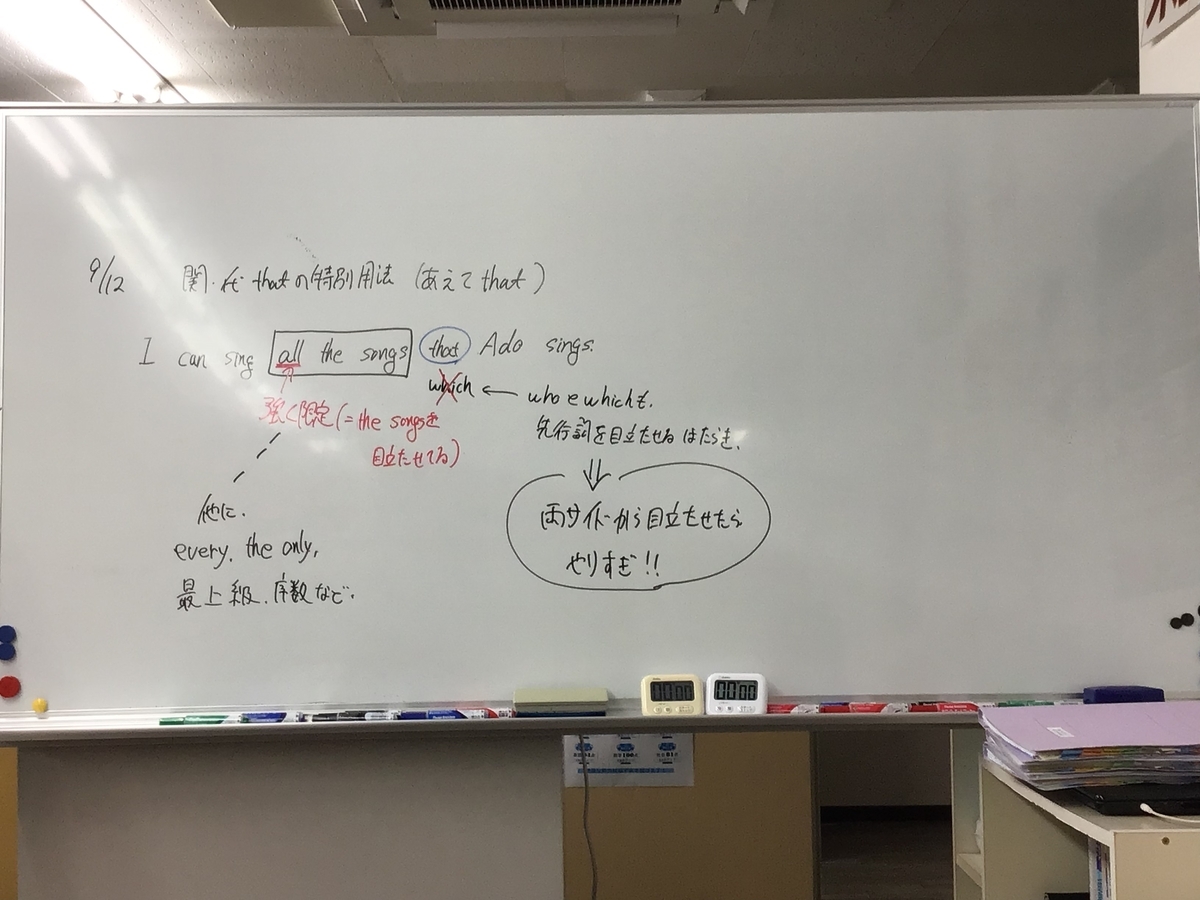 9/12 関・代 thatの特別用法 (あえてthat)
I can sing all the songs that Ado sings.
which ← whoやwhichも、
先行詞を目立たせるはたらき。
強く限定(= the songsを
目立たせてる)
⇓
両サイドから目立たせたら
やりすぎ!!
他に、
every, the only,
最上級、序数など。
00:00
00:00